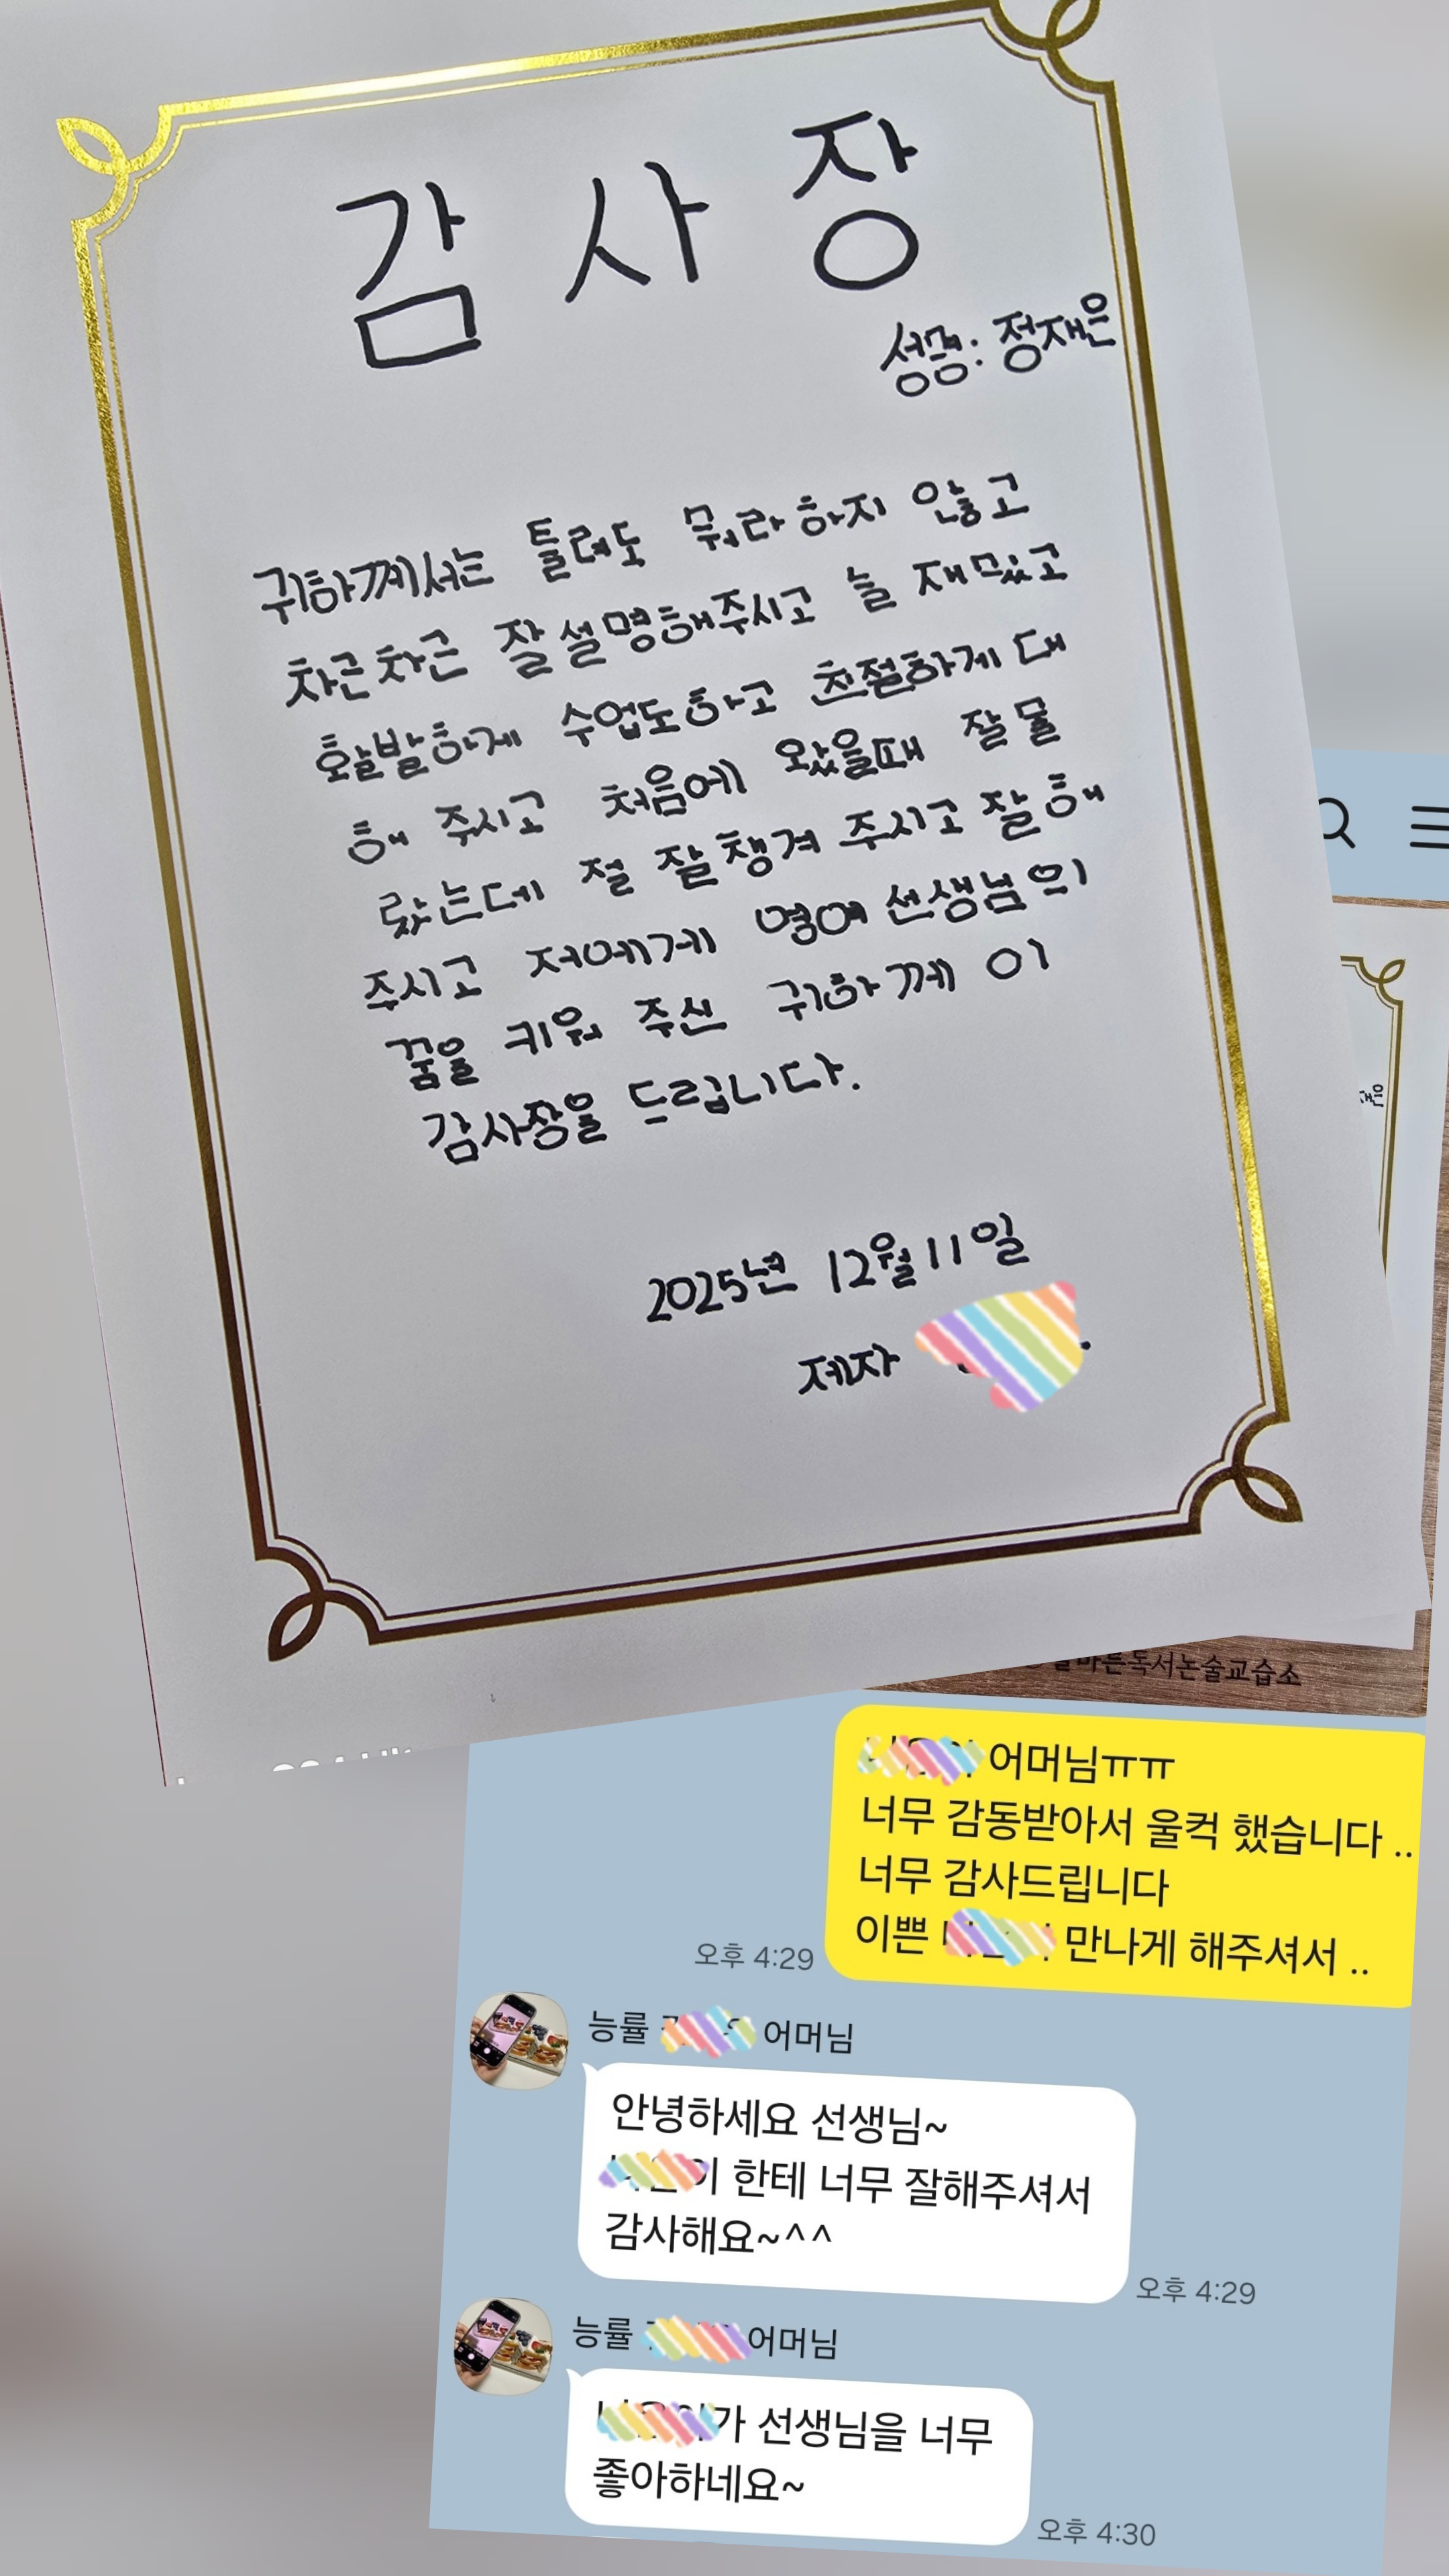 감 사 장
성명: 정재은
귀하께서는 틀려도 뭐라하지 않고
차근차근 잘설명해주시고 늘 재밌고
활발하게 수업도하고 친절하게 대
해 주시고 처음에 왔을때 잘 몰
랐는데 절 잘챙겨 주시고 잘 해
주시고 저에게 영어 선생님의
꿈을 키워 주신 귀하께 이
감사장을 드립니다.
2025년 12월 11일
제자
재은
바른독서논술교습소
어머님ㅠㅠ
너무 감동받아서 울컥 했습니다 ..
너무 감사드립니다
이쁜 만나게 해주셔서 ..
오후 4:29
능률 어머님
안녕하세요 선생님~
이 한테 너무 잘해주셔서
감사해요~^^
오후 4:29
능률 어머님
가 선생님을 너무
좋아하네요~
오후 4:30